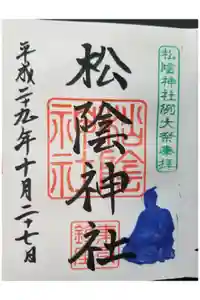 松陰神社例大祭奉拝
松陰神社
松陰
神社
平成二十九年十月二十七日